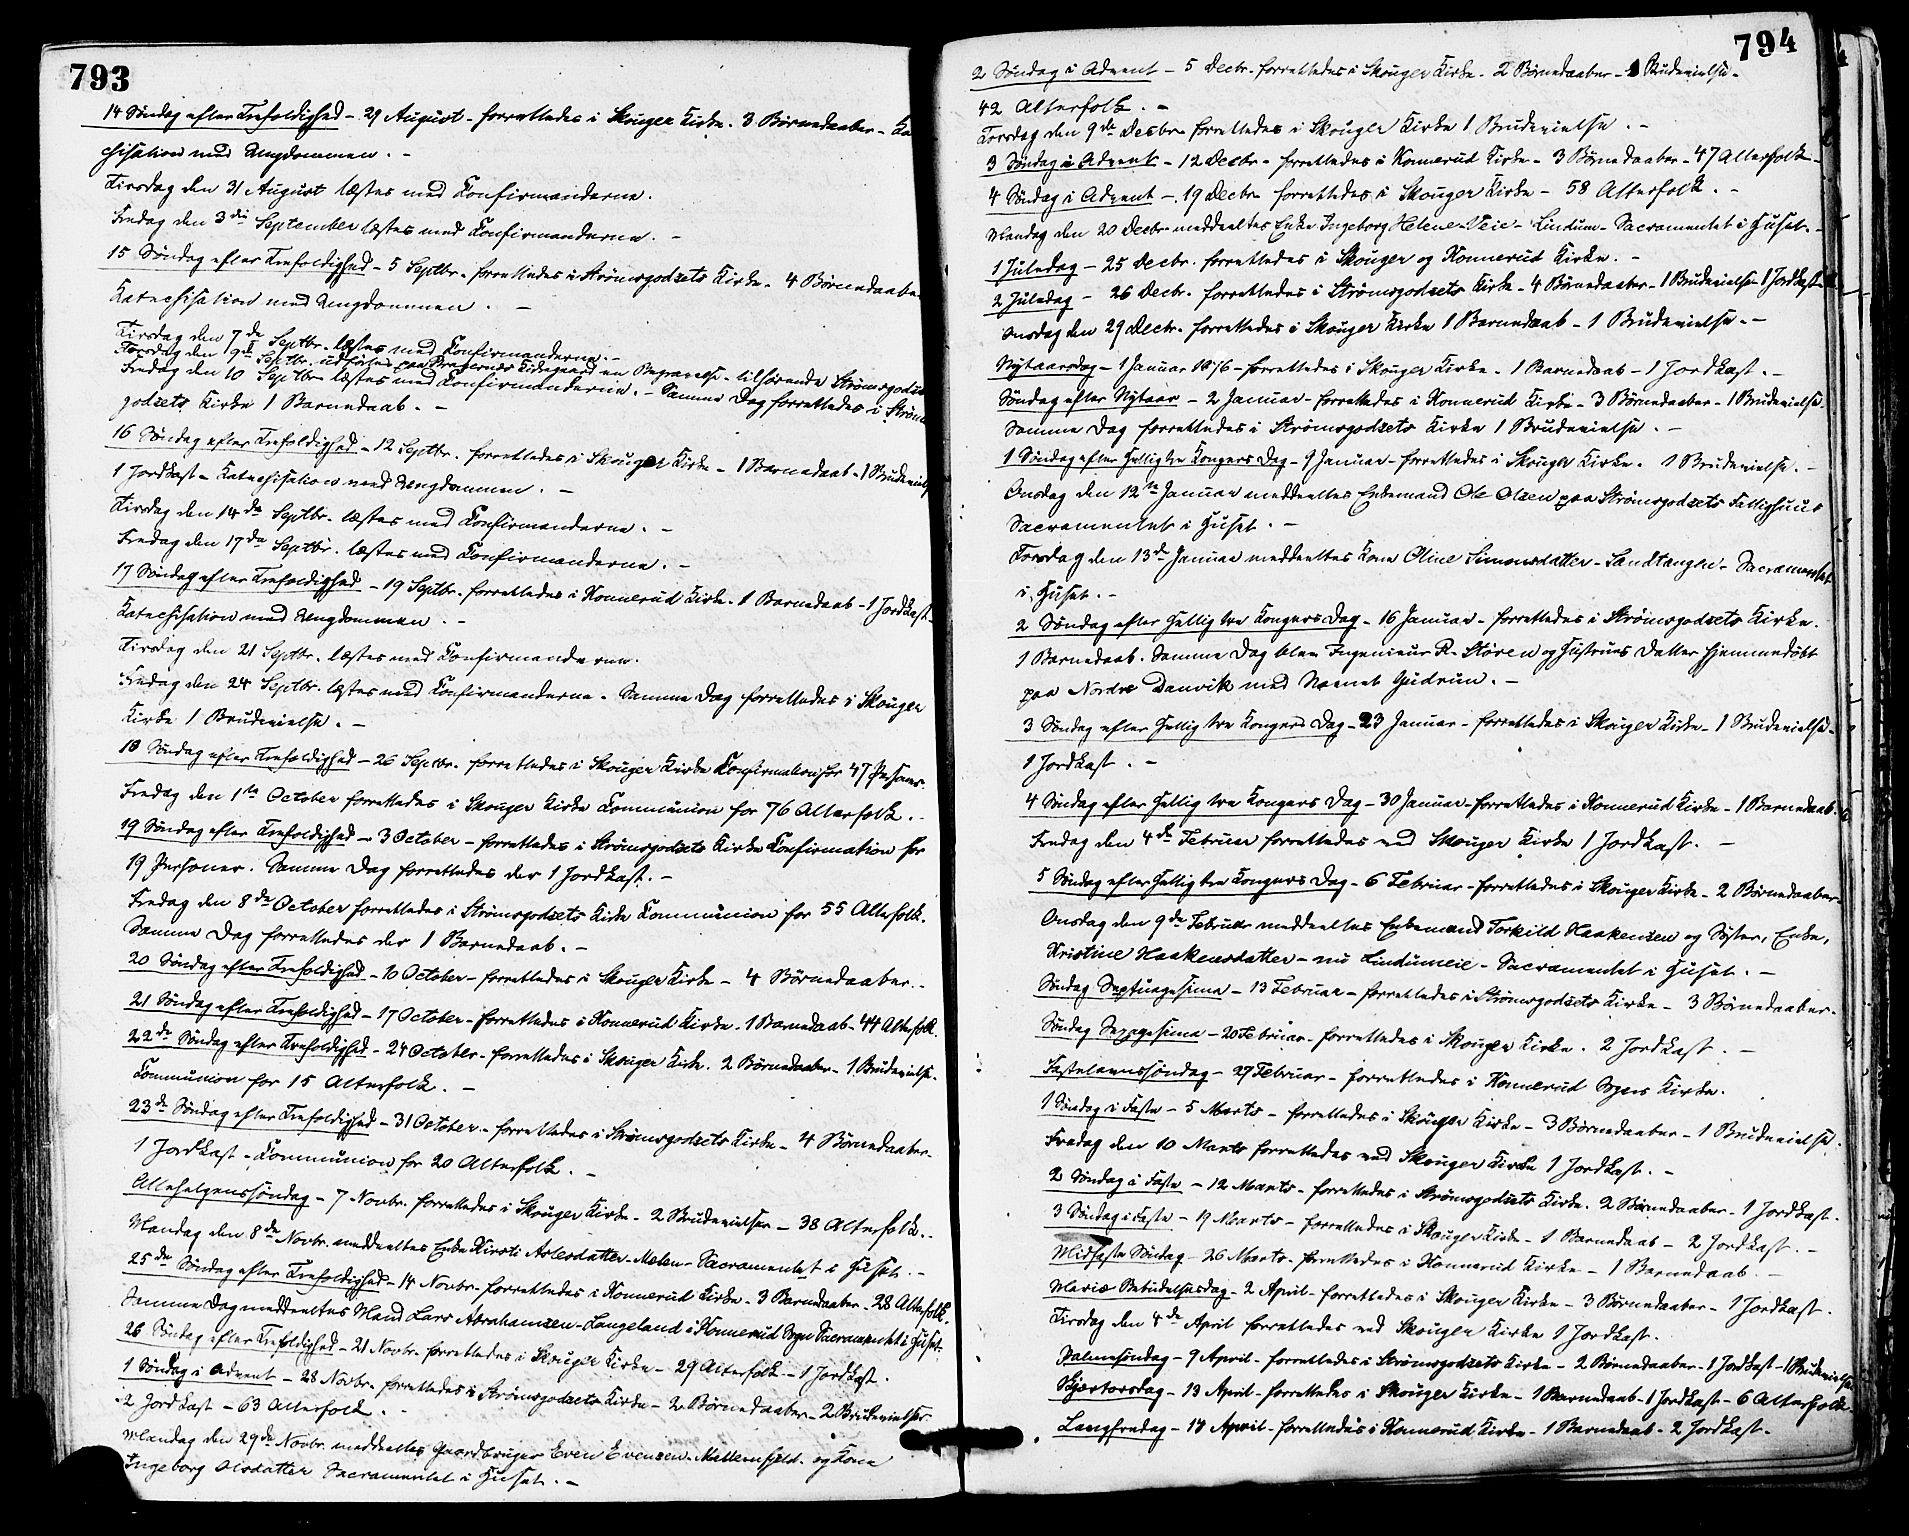 793
14 Søndag efter Trefoldighed – 29 August – forrettedes i Skouger Kirke. 3 Børnedaaber – Ka
chisation med Ungdommen. –
Tirsdag den 31 August læstes med Confirmanderne.
Fredag den 3die September læstes med Confirmanderne. –
15 Søndag efter Trefoldighed – 5 Septbr. forrettedes i Strømsgodsets Kirke. 4 Børnedaaber
Katechisation med Ungdommen. –
Tirsdag den 7de Septbr. læstes med Confirmanderne. –
Torsdag den 9de Septbr. udførtes paa Bragernæs Kirkegaard en Begravelse tilhørende Strømsgodset
Fredag den 10 Septbr læstes med Confirmanderne. – Samme Dag forrettedes i Strøms
godsets Kirke 1 Barnedaab. –
16 Søndag efter Trefoldighed – 12 Septbr. forrettedes i Skouger Kirke – 1 Barnedaab – 1 Brudevielse
1 Jordkast – Katechisation med Ungdommen. –
Tirsdag den 14de Septbr. læstes med Confirmanderne. –
Fredag den 17de Septbr. læstes med Confirmanderne. –
17 Søndag efter Trefoldighed – 19 Septbr. forrettedes i Konnerud Kirke. 1 Barnedaab – 1 Jordkast
Katechisation med Ungdommen. –
Tirsdag den 21 Septbr. læstes med Confirmanderne.
Fredag den 24 Septbr. læstes med Confirmanderne. Samme Dag forrettedes i Skouger
Kirke 1 Brudevielse. –
18 Søndag efter Trefoldighed – 26 Septbr. forrettedes i Skouger Kirke Confirmation for 47 Personer.
Fredag den 1ste October forrettedes i Skouger Kirke Communion for 76 Alterfolk. –
19 Søndag efter Trefoldighed – 3 October – forrettedes i Strømsgodsets Kirke Confirmation for
19 Personer. Samme Dag forrettedes der 1 Jordkast. –
Fredag den 8de October forrettedes i Strømsgodsets Kirke Communion for 55 Alterfolk.
Samme Dag forrettedes der 1 Barnedaab. –
20 Søndag efter Trefoldighed – 10 October – forrettedes i Skouger Kirke – 4 Børnedaaber. –
21 Søndag efter Trefoldighed – 17 October – forrettedes i Konnerud Kirke. 1 Barnedaab – 44 Alterfolk.
22de Søndag efter Trefoldighed – 24 October – forrettedes i Skouger Kirke. 2 Børnedaaber – 1 Brudevielse.
Communion for 15 Alterfolk. –
23de Søndag efter Trefoldighed – 31 October – forrettedes i Strømsgodsets Kirke – 4 Børnedaaber.
1 Jordkast – Communion for 20 Alterfolk. –
Allehelgenssøndag – 7 Novbr. forrettedes i Skouger Kirke – 2 Brudevielser – 38 Alterfolk. –
Mandag den 8de Novbr. meddeeltes Enke Kirsti Aslesdatter – Melen – Sacramentet i Huset. –
25de Søndag efter Trefoldighed – 14 Novbr. forrettedes i Konnerud Kirke. 3 Børnedaaber – 28 Alterfolk.
Samme Dag meddeeltes Mand Lars Abrahamsen – Langeland i Konnerud Sogn Sacramentet i Huset.
26 Søndag efter Trefoldighed – 21 Novbr. forrettedes i Skouger Kirke – 29 Alterfolk – 1 Jordkast.
1 Søndag i Advent – 28 Novbr. forrettedes i Strømsgodsets Kirke – 2 Børnedaaber – 2 Brudevielser
2 Jordkast – 63 Alterfolk. –
Mandag den 29de Novbr. meddeeltes Gaardbruger Even Evensen – og Kone
Ingeborg Olsdatter Sacramentet i Huset. –
794
2 Søndag i Advent – 5 Decbr. forrettedes i Skouger Kirke. 2 Børnedaaber – 1 Brudevielse –
42 Alterfolk. –
Torsdag den 9de Decbr forrettedes i Skouger Kirke 1 Brudevielse. –
3 Søndag i Advent – 12 Decbr. forrettedes i Konnerud Kirke – 3 Børnedaaber – 47 Alterfolk –
4 Søndag i Advent – 19 Decbr forrettedes i Skouger Kirke – 58 Alterfolk. –
Mandag den 20 Decbr meddeeltes Enke Ingeborg Helene Veie – Lindum – Sacramentet i Huset. –
1 Juledag – 25 Decbr. forrettedes i Skouger og Konnerud Kirke. –
2 Juledag – 26 Decbr. forrettedes i Strømsgodsets Kirke – 4 Børnedaaber – 1 Brudevielse 1 Jordkast
Onsdag den 29 Decbr. forrettedes i Skouger Kirke 1 Barnedaab – 1 Brudevielse. –
Nytaarsdag – 1 Januar 1876 – forrettedes i Skouger Kirke. 1 Barnedaab – 1 Jordkast. –
Søndag efter Nytaar – 2 Januar – forrettedes i Konnerud Kirke – 3 Børnedaaber – 1 Brudevielse.
Samme Dag forrettedes i Strømsgodsets Kirke 1 Brudevielse. –
1 Søndag efter Hellig tre Kongers Dag – 9 Januar – forrettedes i Skouger Kirke. 1 Brudevielse. –
Onsdag den 12te Januar meddeeltes Enkemand Ole Olsen paa Strømsgodsets Fattighuus
Sacramentet i Huset. –
Torsdag den 13de Januar meddeeltes Kone Oline Simonsdatter – Sandtangen – Sacramentet
i Huset. –
2 Søndag efter Hellig tre Kongers Dag – 16 Januar – forrettedes i Strømsgodsets Kirke.
1 Barnedaab. Samme Dag blev Ingenieur R. Støren og Hustrues Datter hjemmedøbt
paa Nordre Danvik med Navnet Gudrun. –
3 Søndag efter Hellig tre Kongers Dag – 23 Januar – forrettedes i Skouger Kirke – 1 Brudevielse –
1 Jordkast. –
4 Søndag efter Hellig tre Kongers Dag – 30 Januar – forrettedes i Konnerud Kirke – 1 Barnedaab.
Fredag den 4de Februar forrettedes ved Skouger Kirke 1 Jordkast. –
5 Søndag efter Hellig tre Kongers Dag – 6 Februar – forrettedes i Skouger Kirke – 2 Børnedaaber.
Onsdag den 9de Februar meddeeltes Enkemand Torkild Haakensen og Syster, Enke,
Kristine Haakensdatter – – Sacramentet i Huset. –
Søndag Septuagesima – 13 Februar – forrettedes i Strømsgodsets Kirke – 3 Børnedaaber.
Søndag Sexagesima – 20 Februar – forrettedes i Skouger Kirke. 2 Jordkast. –
Fastelavnssøndag – 27 Februar – forrettedes i Konnerud Sogns Kirke.
1 Søndag i Faste – 5 Marts – forrettedes i Skouger Kirke – 3 Børnedaaber – 1 Brudevielse.
Fredag den 10 Marts forrettedes ved Skouger Kirke 1 Jordkast. –
2 Søndag i Faste – 12 Marts – forrettedes i Strømsgodsets Kirke. 2 Børnedaaber – 1 Jordkast.
3 Søndag i Faste – 19 Marts – forrettedes i Skouger Kirke – 1 Barnedaab – 2 Jordkast. –
Midfaste Søndag – 26 Marts – forrettedes i Konnerud Kirke – 1 Barnedaab. –
Mariæ Bebudelsesdag – 2 April – forrettedes i Skouger Kirke – 3 Børnedaaber – 1 Jordkast.
Tirsdag den 4de April forrettedes ved Skouger Kirke 1 Jordkast.
Palmesøndag – 9 April – forrettedes i Strømsgodsets Kirke – 2 Børnedaaber – 1 Jordkast – 1 Brudevielse
Skjærtorsdag – 13 April – forrettedes i Skouger Kirke – 1 Barnedaab – 1 Jordkast – 6 Alterfolk.
Langfredag – 14 April – forrettedes i Konnerud Kirke – 1 Barnedaab – 2 Jordkast –